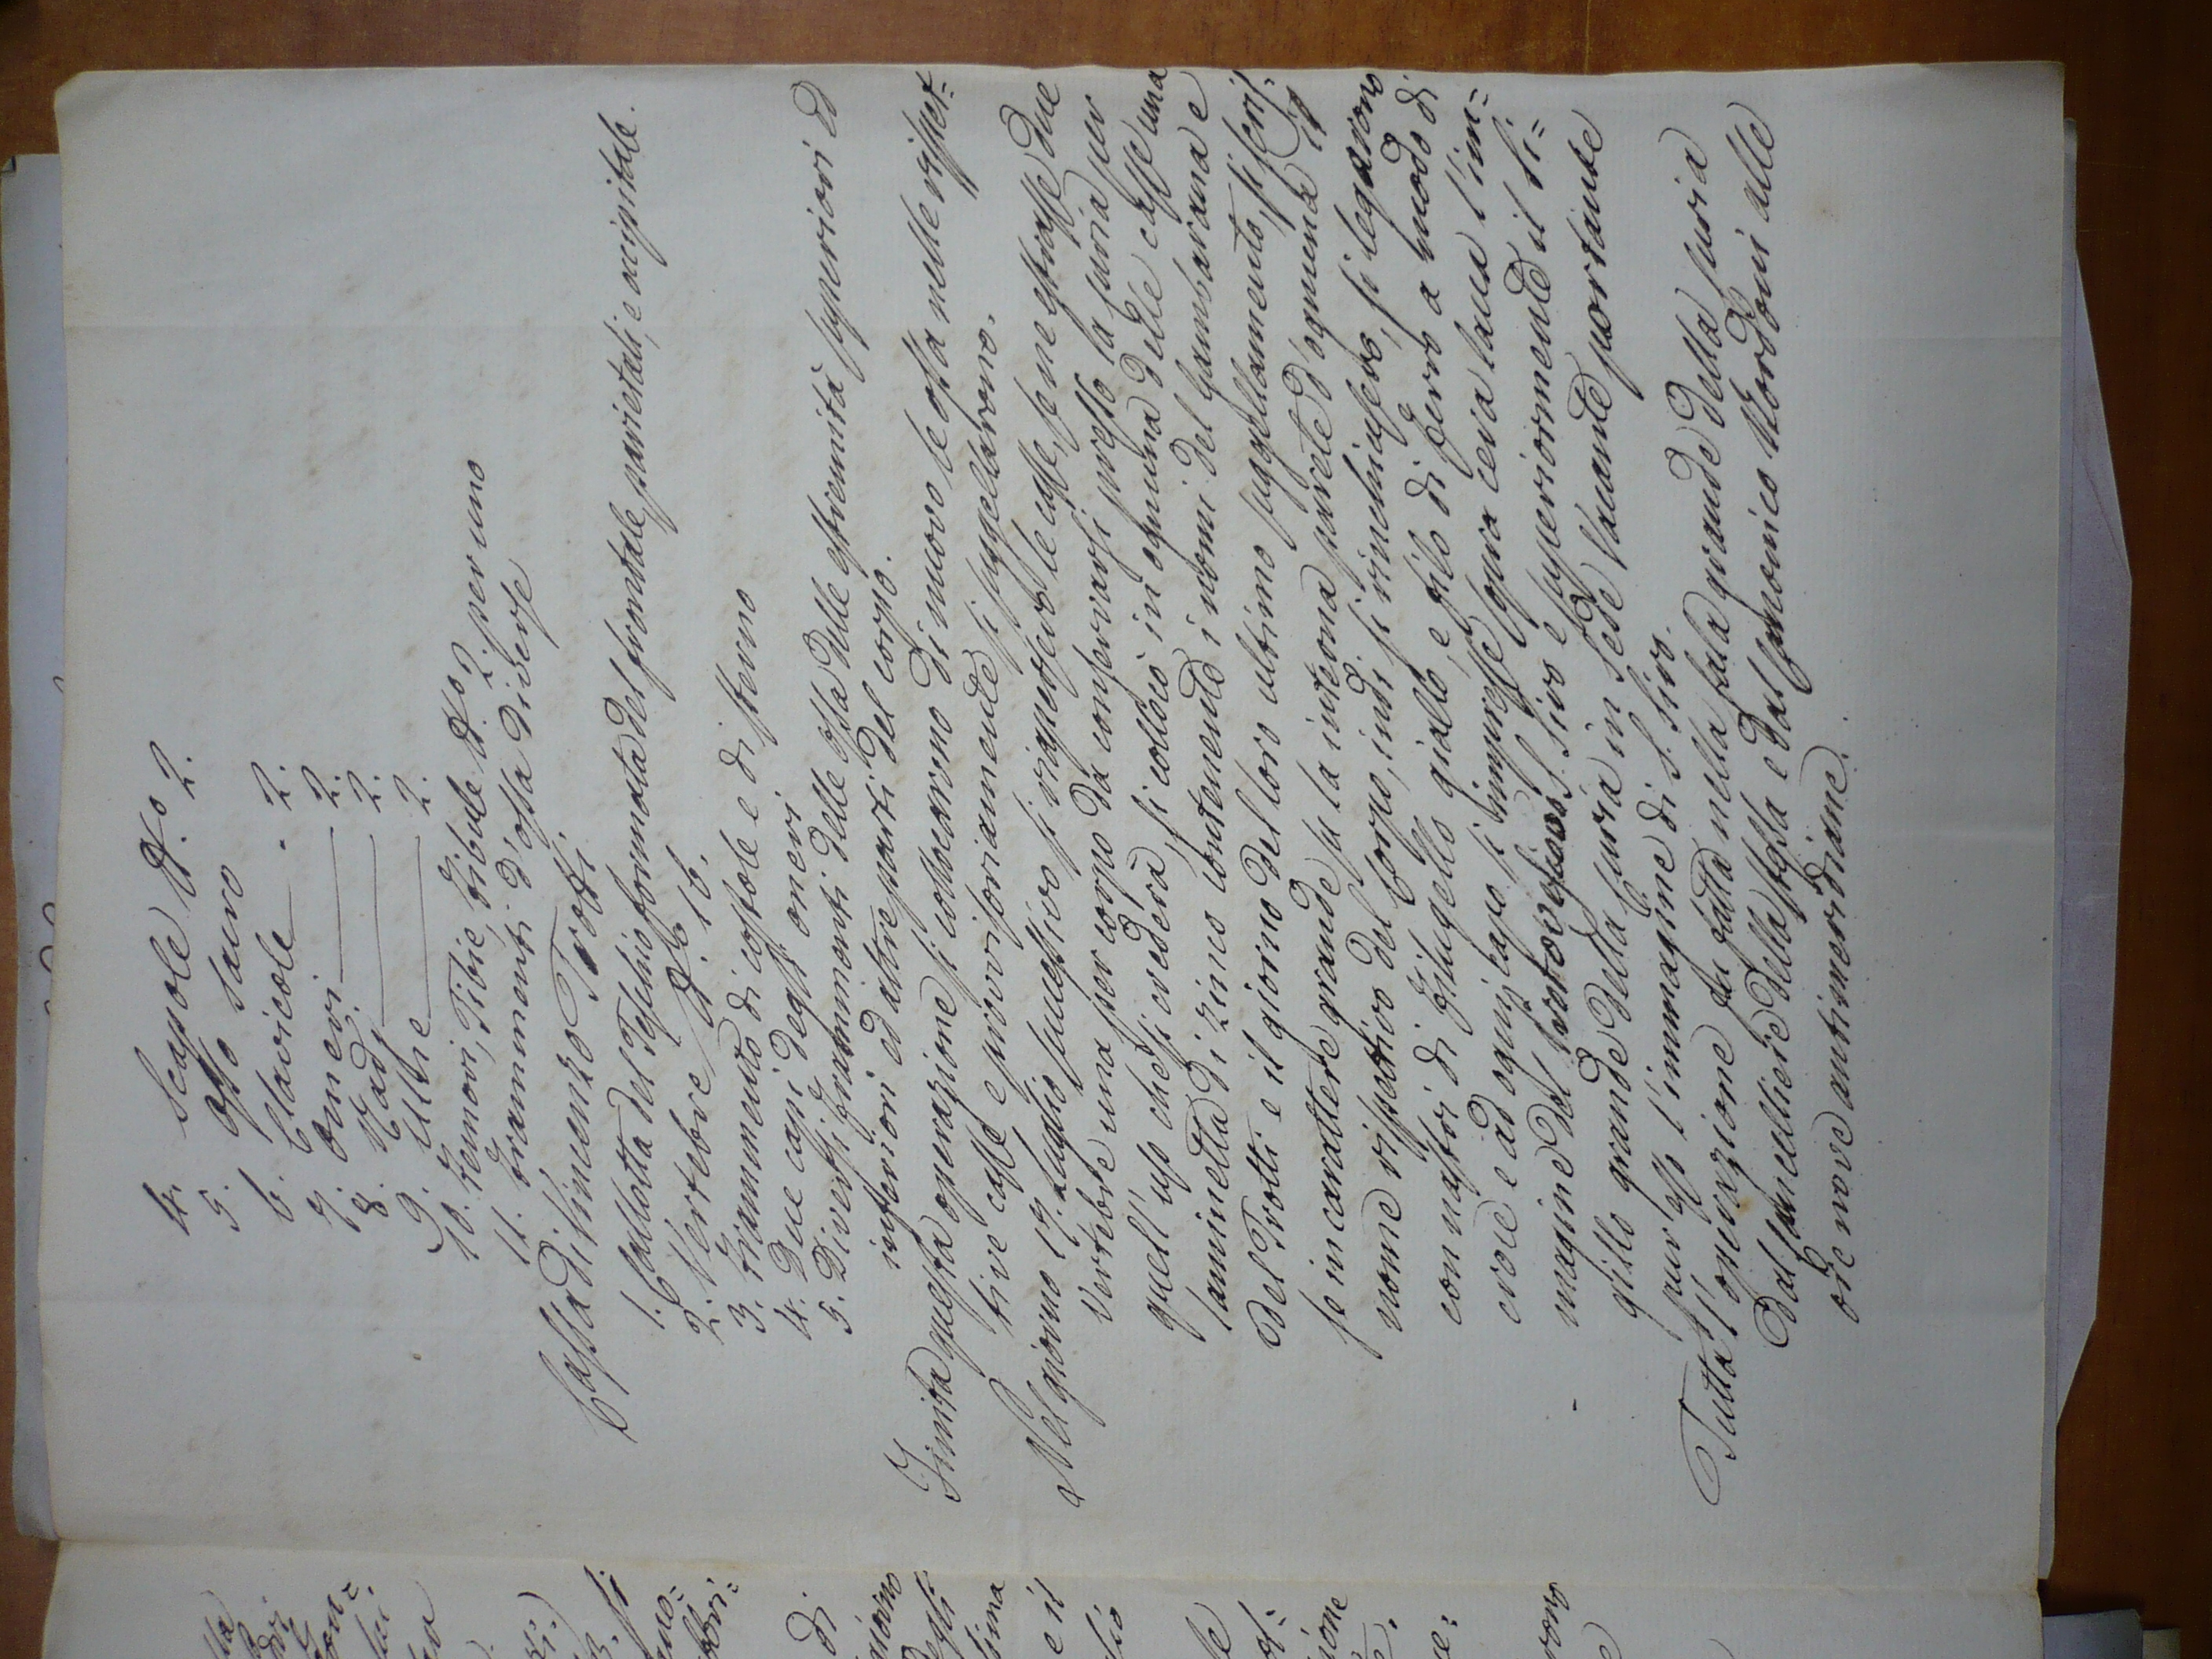 4. Scapole N.o 2.
5. Osso sacro
6. Clavicole - 2.
7. Omeri 2.
8. Radj 2.
9. Ulne 2.
10. Femori, Tibie, Fibule N.o 2. per uno
11. Frammenti d'ossa diverse
Cassa di Vincenzo Trotti.
1. Callotta del Teschio formata del frontale, parietali, e occipitale.
2. Vertebre N.o 16.
3. Frammento di costole e di sterno
4. Due capi degli omeri
5. Diversi frammenti delle ossa delle estremità superiori ed
inferiori ed altre parti del corpo.
Finita questa operazione si collocarono di nuovo le ossa nelle rispet=
tive casse e provvisoriamente si suggellarono.
Nel giorno 17. Luglio successivo si riapersero le casse, se ne estrasse due
Vertebre una per corpo da conservarsi presso la curia per
quell'uso che si crederà, si collocò in ognuna delle casse una
laminetta di zinco contenente i nomi del Gambarana e
del Trotti e il giorno del loro ultimo suggellamento, si scris=
se in carattere grande su la interna parete d'ognuna il
nome rispettivo del Corpo, indi si rinchiusero, si legarono
con nastri di filugello giallo, e filo di ferro a modo di
croce e ad ogni capo si impresse sopra cera lacca l'im=
magine del S. Siro e superiormente il Si=
gillo grande della Curia in Sede Vacante portante
pur esso l'immagine di S. Siro.
Tutta l'operazione fu fatta nella sala grande della curia
dal cancelliere della stessa e dal canonico Mondoni alle
ore nove antimeridiane.